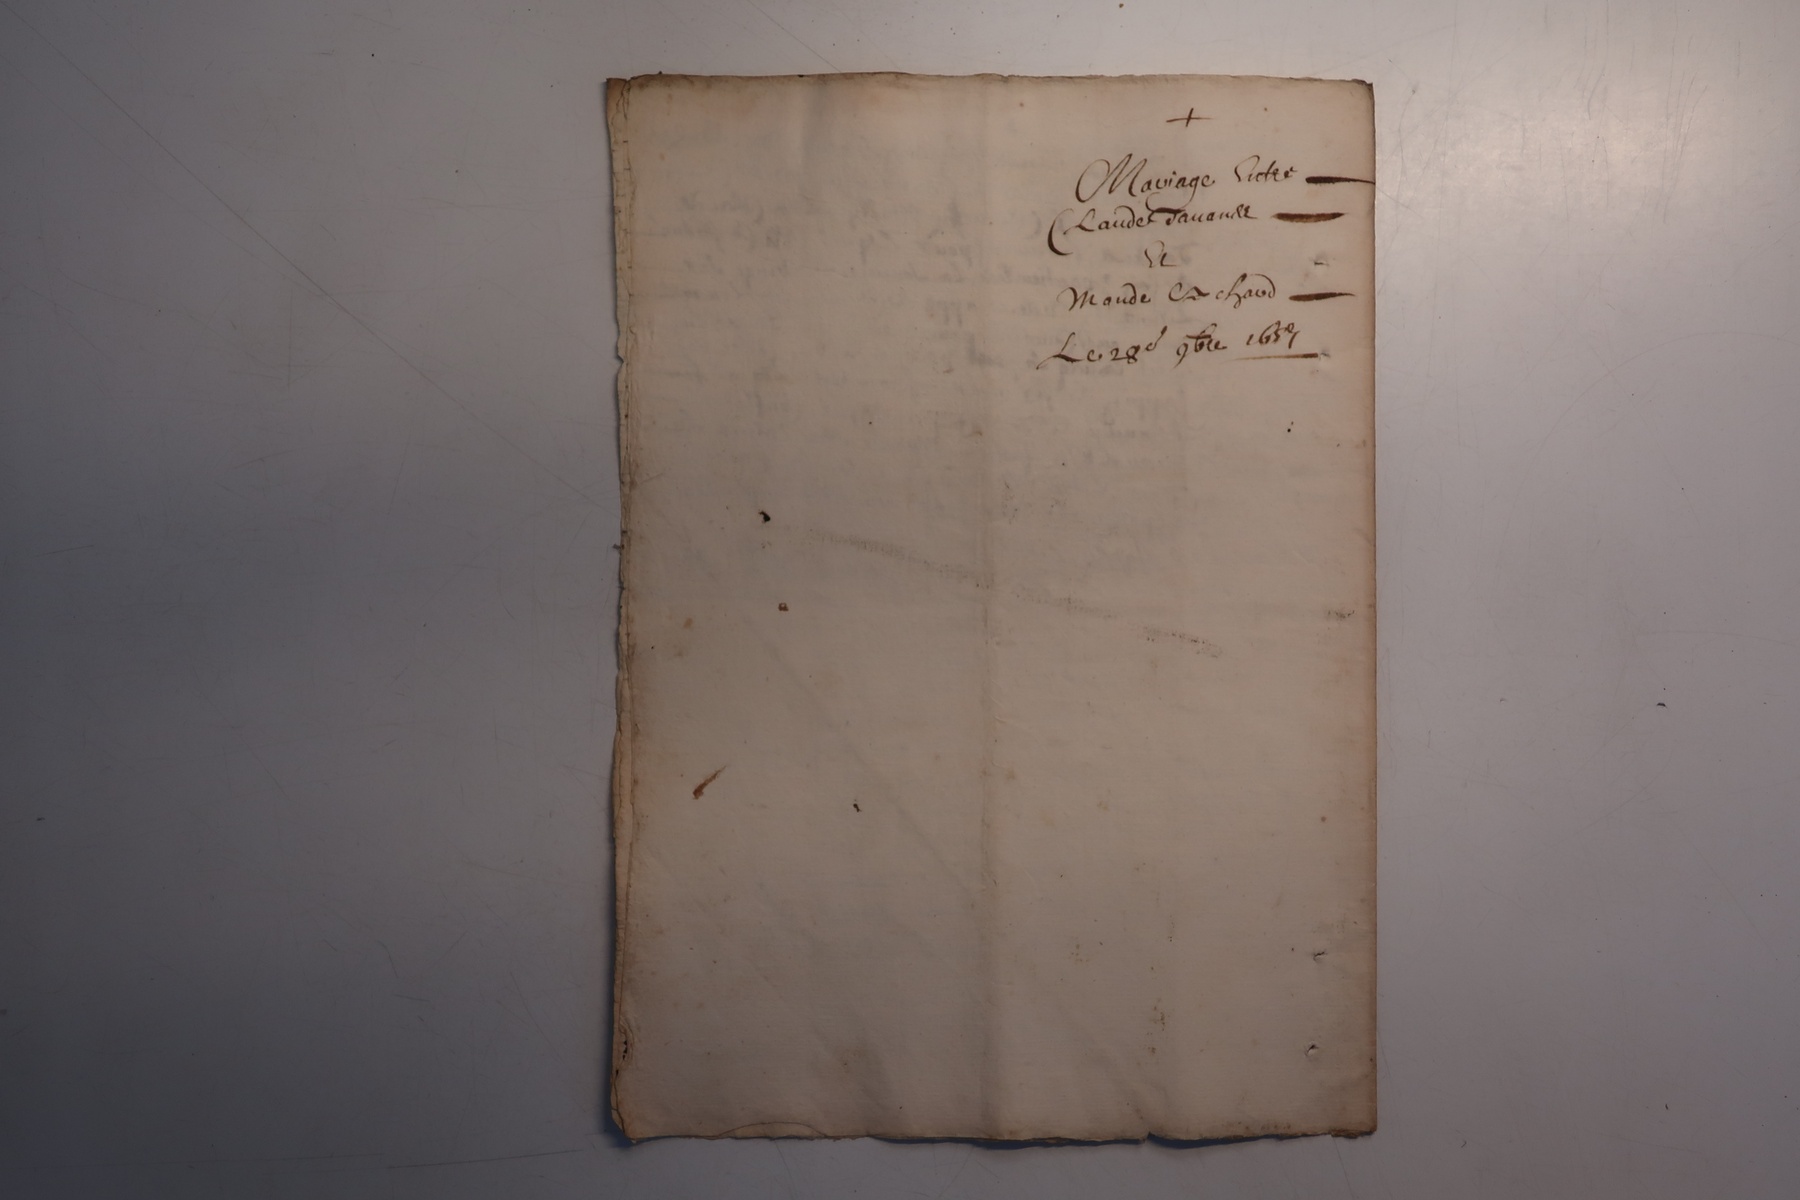 +
Mariage Entre
Claude Dauanet
Et
Mande Chard
Le 28e 9bre 1657